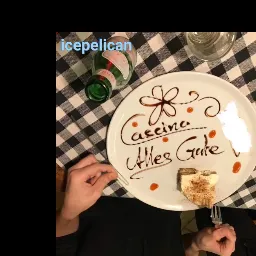 icepelican
Cascina
Alles Gute